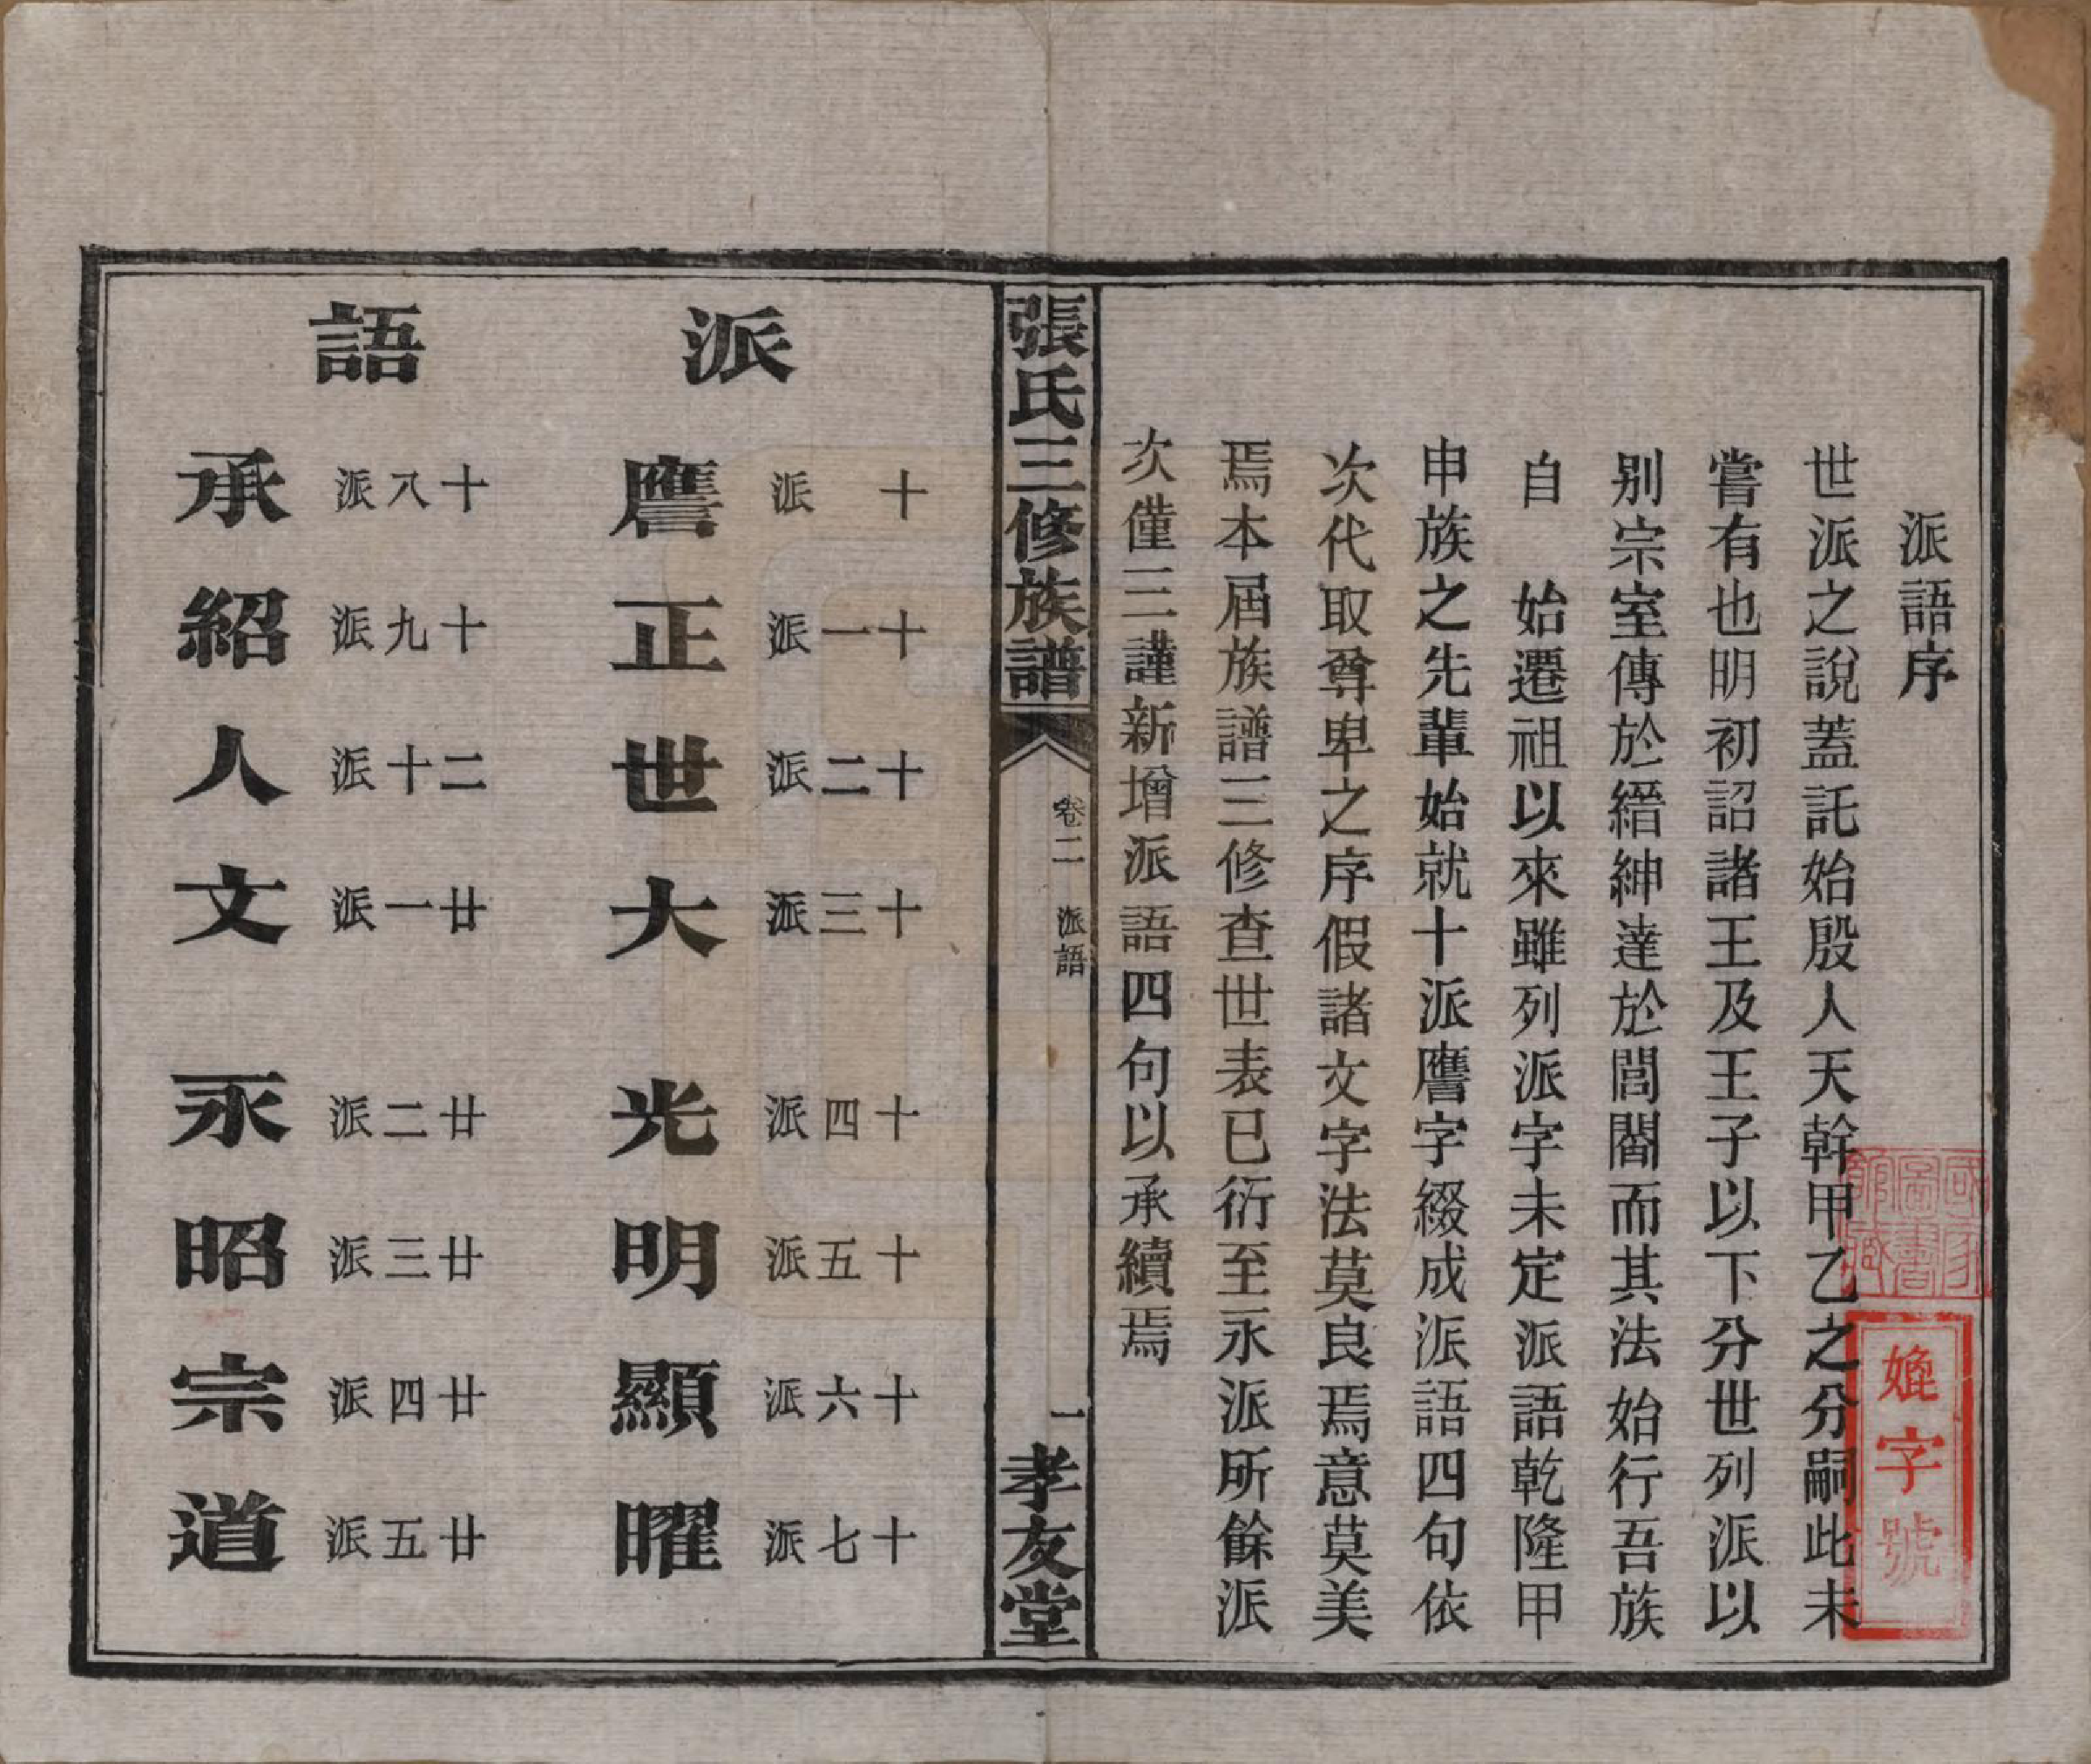 派語序
世派之說蓋託始殷人天幹甲乙之分嗣此未
嘗有也明初詔諸王及王子以下分世列派以
别宗室傳於縉紳達於閭閻而其法始行吾族
自　始遷祖以來雖列派字未定派語乾隆甲
申族之先輩始就十派譍字綴成派語四句依
次代取尊卑之序假諸文字法莫良焉意莫美
焉本屆族譜三修查世表已衍至永派所餘派
次僅三謹新增派語四句以承續焉
張氏三修族譜
卷二　派語
一
孝友堂
派
十派　十一派　十二派　十三派　十四派　十五派　十六派　十七派
譍正世大　光明顯曜
語
十八派　十九派　二十派　廿一派　廿二派　廿三派　廿四派　廿五派
承紹人文　永昭宗道
國家
圖書
館藏
字號